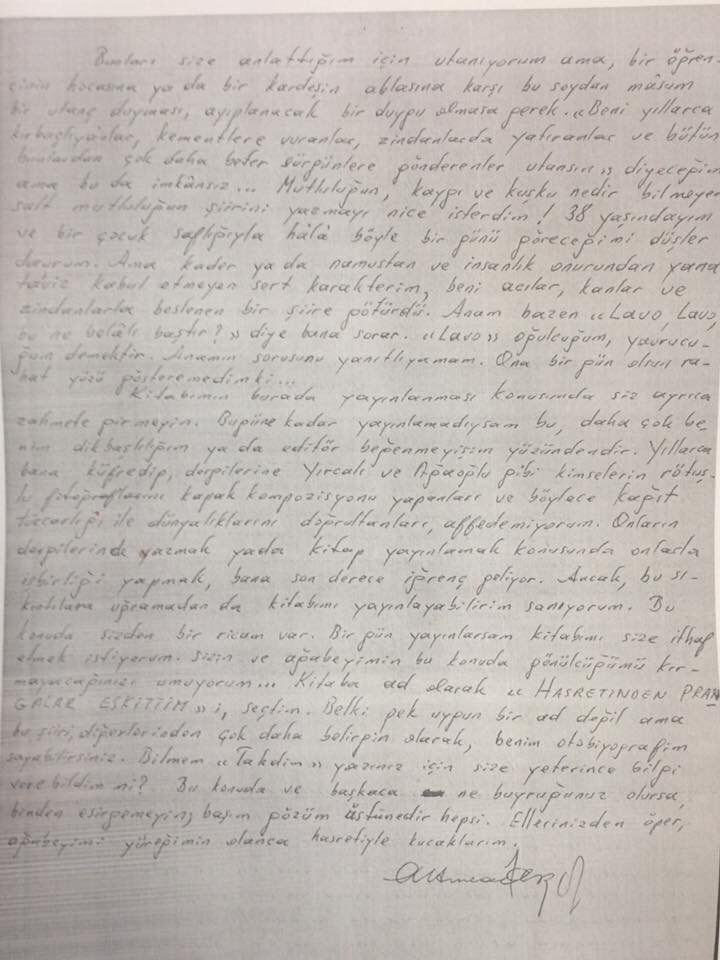 Bunları size anlattığım için utanıyorum ama, bir öğren-
cinin hocasına ya da bir kardeşin ablasına karşı bu soydan mâsum
bir utanç duyması, ayıplanacak bir duygu olmasa gerek. «Beni yıllarca
kırbaçlıyanlar, kementlere vuranlar, zindanlarda yatıranlar ve bütün
bunlardan çok daha beter sürgünlere gönderenler utansın» diyeceğim
ama bu da imkânsız... Mutluluğun, kaygı ve kuşku nedir bilmeyen
salt mutluluğun şiirini yazmayı nice isterdim! 38 yaşındayım
ve bir çocuk saflığıyla hâlâ böyle bir günü göreceğimi düşler
dururum. Ama kader ya da namustan ve insanlık onurundan yana
taviz kabul etmeyen sert karakterim, beni acılar, kanlar ve
zindanlarla beslenen bir şiire götürdü. Anam bazen «Lavo, Lavo,
bu ne belâlı baştır?» diye bana sorar. «Lavo» oğulcuğum, yavrucu-
ğum demektir. Anamın sorusunu yanıtlıyamam. Ona bir gün olsun ra-
hat yüzü gösteremedimki...
Kitabımın burada yayınlanması konusunda siz ayrıca
zahmete girmeyin. Bugüne kadar yayınlamadıysam bu, daha çok be-
nim dikbaşlılığım ya da editör beğenmeyişim yüzündendir. Yıllarca
bana küfredip, dergilerine Yırcalı ve Ağaoğlu gibi kimselerin rötuş-
lu fotoğraflarını kapak kompozisyonu yapanları ve böylece kağıt
tüccarlığı ile dünyalıklarını doğrultanları, affedemiyorum. Onların
dergilerinde yazmak yada kitap yayınlamak konusunda onlarla
işbirliği yapmak, bana son derece iğrenç geliyor. Ancak, bu sı-
kıntılara uğramadan da kitabımı yayınlayabilirim sanıyorum. Bu
konuda sizden bir ricam var. Bir gün yayınlarsam kitabımı size ithaf
etmek istiyorum. Sizin ve ağabeyimin bu konuda gönülcüğümü kır-
mayacağınızı umuyorum... Kitaba ad olarak «HASRETİNDEN PRAN
GALAR ESKİTTİM»i, seçtim. Belki pek uygun bir ad değil ama
bu şiiri, diğerlerinden çok daha belirgin olarak, benim otobiyografim
sayabilirsiniz. Bilmem «Takdim» yazınız için size yeterince bilgi
verebildim mi? Bu konuda ve başkaca ne buyruğunuz olursa,
benden esirgemeyin; başım gözüm üstünedir hepsi. Ellerinizden öper,
ağabeyimi yüreğimin olanca hasretiyle kucaklarım.